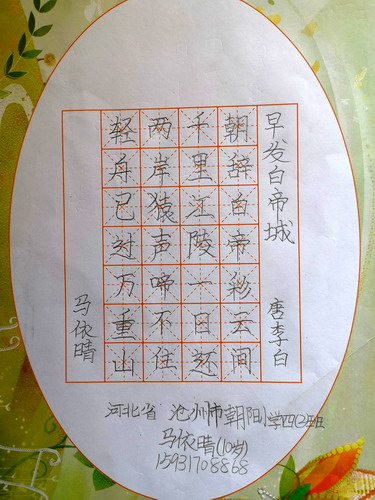 早发白帝城
唐李白
朝辞白帝彩云间
千里江陵一日还
两岸猿声啼不住
轻舟已过万重山
马依晴
河北省 沧州市朝阳小学四(2)班
马依晴(10岁)
15931708868